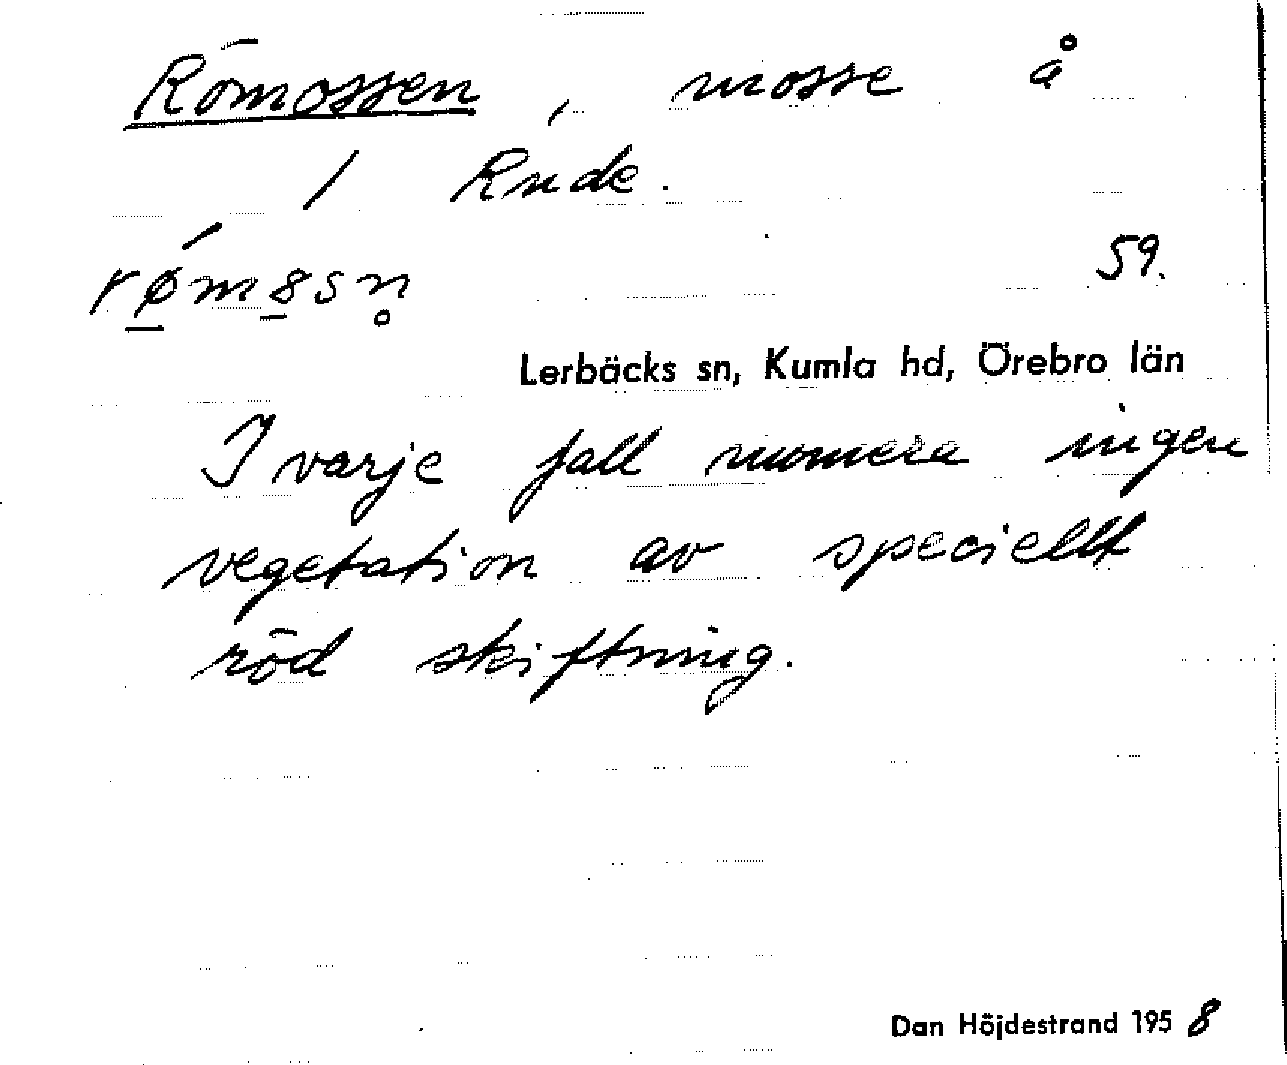 Römossen, mosse å
1 Rude.
rǿ̱mo̱sn̥ 59.
Lerbäcks sn, Kumla hd, Örebro län
I varje fall numera ingen
vegetation av speciellt
röd skiftning.
Dan Höjdestrand 1958